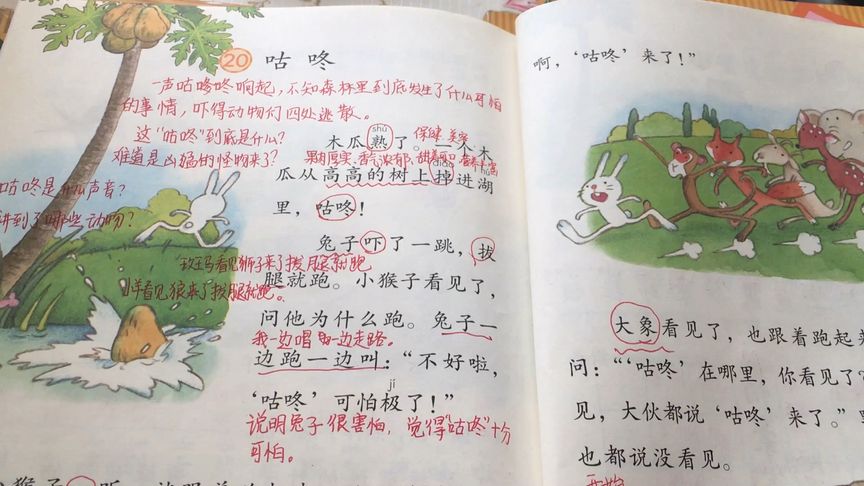 20 咕咚
一声咕咚咚响起，不知森林里到底发生了什么可怕
的事情，吓得动物们四处逃散。
这“咕咚”到底是什么？
难道是凶猛的怪物来了？
咕咚是什么声音？
讲到了哪些动物？
shú
木瓜熟了。一个木
保健 美容
果肉厚实、香气浓郁、甜美可口、营养丰富
瓜从高高的树上掉进湖
里，咕咚！
兔子吓了一跳，拔
斑马看见狮子来了拔腿就跑
腿就跑。小猴子看见了，
小羊看见狼来了拔腿就跑。
问他为什么跑。兔子一
我一边唱歌一边走路。
边跑一边叫：“不好啦，
jí
‘咕咚’可怕极了！”
说明兔子很害怕，觉得“咕咚”十分
可怕。
猴子一听，
啊，‘咕咚’来了！”
大象看见了，也跟着跑起来
问：“‘咕咚’在哪里，你看见了
见，大伙都说‘咕咚’来了。”
也都说没看见。